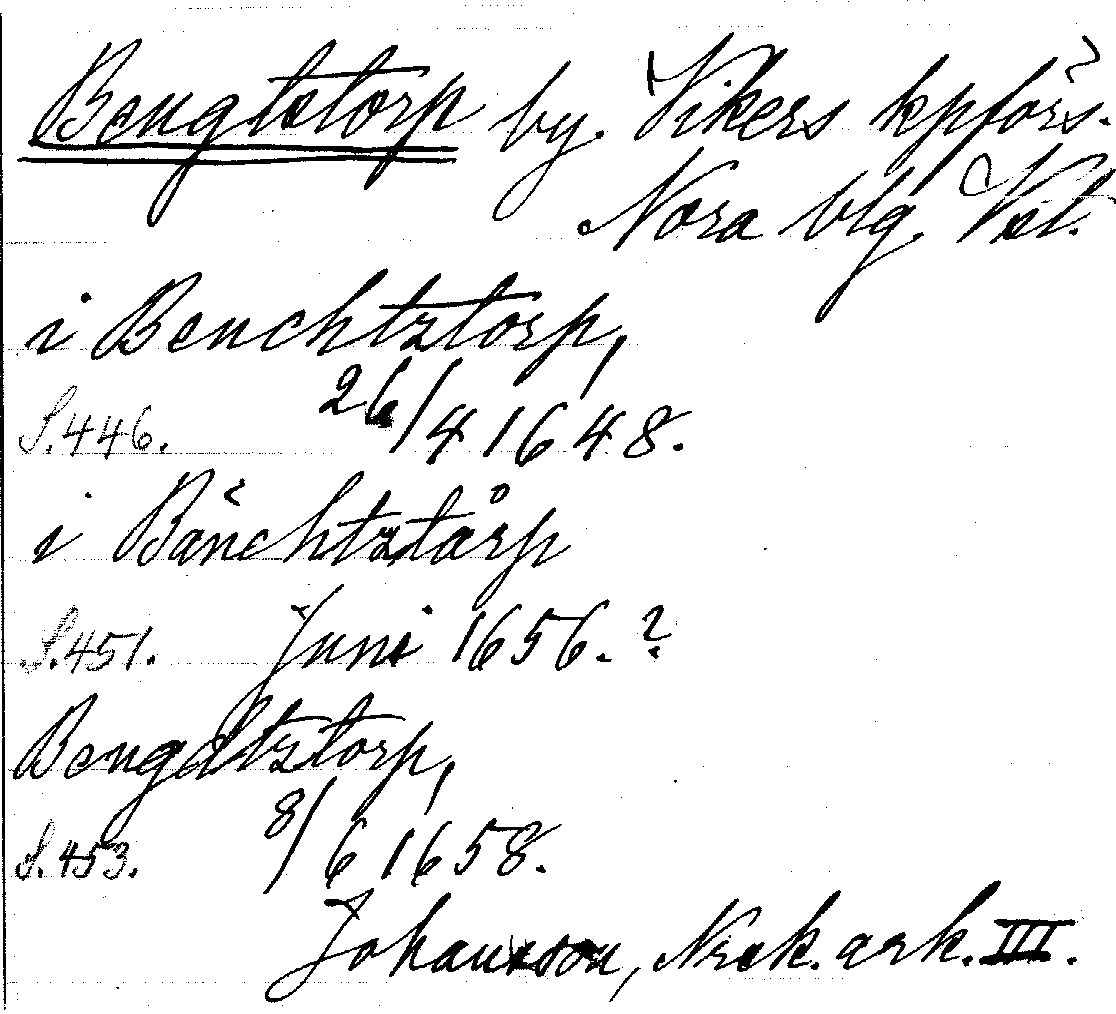 Bengtstorp by. Vikers kpförs.
Nora blg. Vstl.
i Benchtztorp,
S.446. 26/4 1648.
i Bänchtztårp
S.451. Juni 1656.?
Bengdtztorp,
S.453. 8/6 1658.
Johansson, Nrck. ark. III.